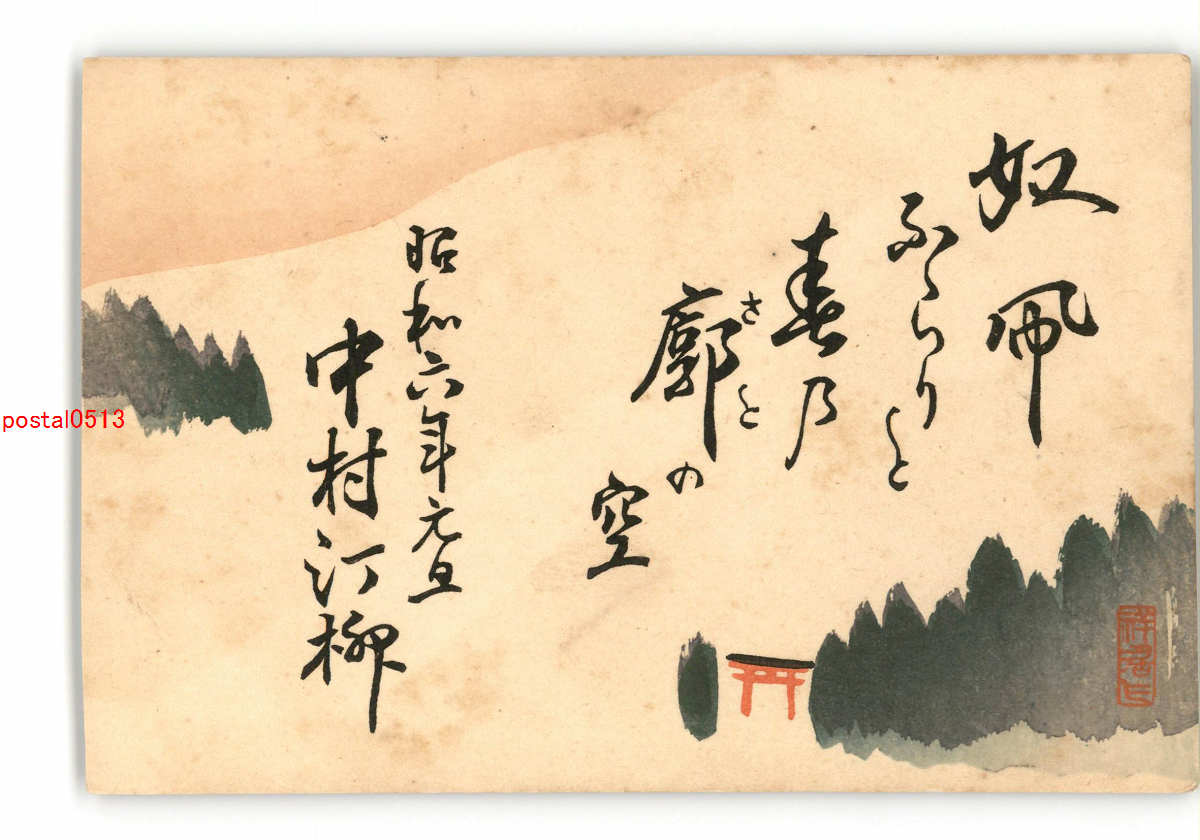 奴凧
ふらりふらりと
春乃
廓の空
さと
昭和六年元旦
中村汀柳
postal0513